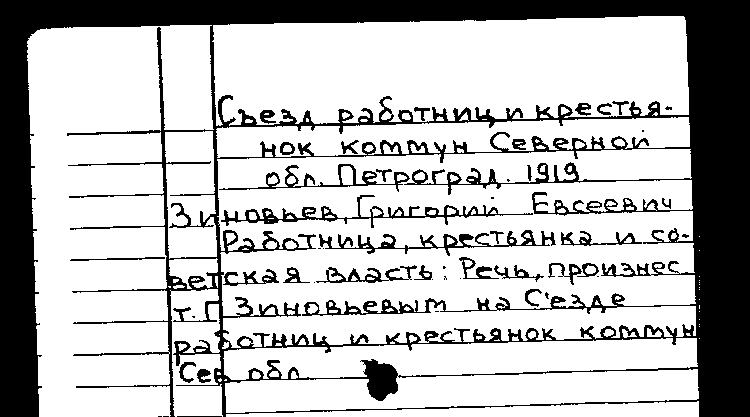 Съезд работниц и крестья-
нок коммун Северной
обл. Петроград. 1919
Зиновьев, Григорий Евсеевич
Работница, крестьянка и со-
ветская власть: Речь, произнес.
т. Г. Зиновьевым на С'езде
работниц и крестьянок коммун
Сев. обл.